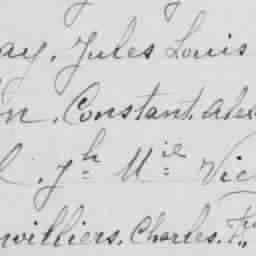 ay, Jules Louis
n, Constant, Alex
l. Jh Mie Vic
williers, Charles, Fr